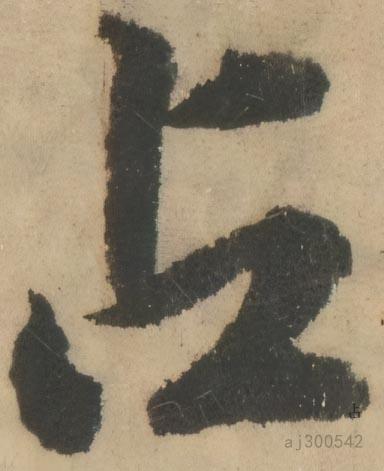 占
占
aj300542